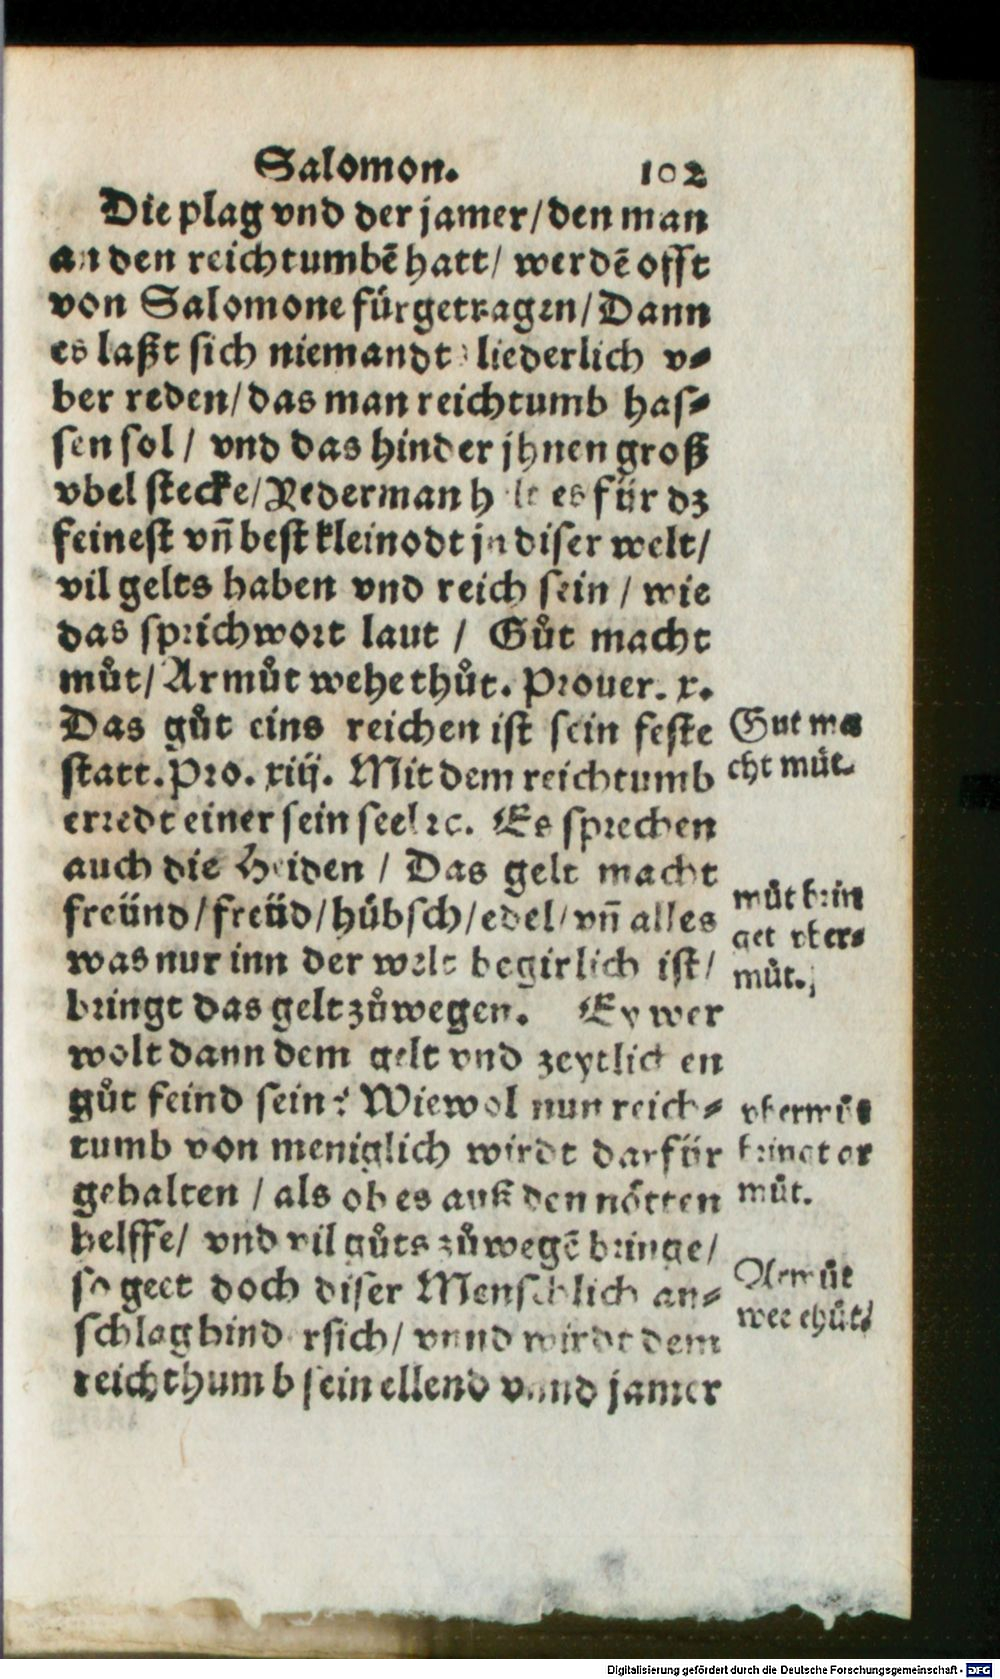 Salomon. 102
Die plag vnd der jamer/den man
an den reichtumbē hatt/ werdē offt
von Salomone fürgetragen/Dann
es laßt sich niemandt liederlich v⸗
ber reden/das man reichtumb has⸗
sen sol/ vnd das hinder jhnen groß
vbel stecke/Yederman helt es für dz
feinest vñ best kleinodt jn diser welt/
vil gelts haben vnd reich sein / wie
das sprichwort laut / Gůt macht
můt/Armůt wehe thůt. Prouer. x.
Das gůt eins reichen ist sein feste
statt. Pro. xiij. Mit dem reichtumb
erredt einer sein seel ꝛc. Es sprechen
auch die Heiden / Das gelt macht
freünd/freüd/hübsch/edel/vñ alles
was nur inn der welt begirlich ist/
bringt das gelt zůwegen. Ey wer
wolt dann dem gelt vnd zeytlichen
gůt feind sein? Wiewol nun reich⸗
tumb von meniglich wirdt darfür
gehalten / als ob es auß den nötten
helffe/ vnd vil gůts zůwegē bringe/
so geet doch diser Menschlich an⸗
schlag hindersich/ vnnd wirdt dem
reichthumb sein ellend vnnd jamer
Gut ma
cht můt.
můt brin
get vber⸗
můt.
vbermůt
bringt ar
můt.
Armůt
wee thůt.
Digitalisierung gefördert durch die Deutsche Forschungsgemeinschaft - DFG